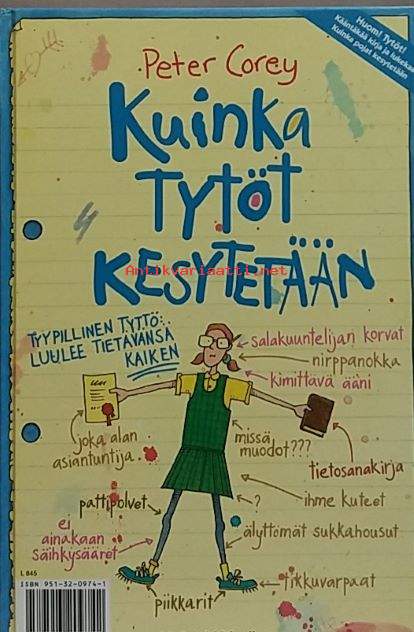 Huom! Tytöt!
Kääntäkää kirja ja lukekaa
Kuinka pojat kesytetään
Peter Corey
Kuinka
TYTÖT
KESYTETÄÄN
Antikvariaatti.net
TYYPILLINEN TYTTÖ:
LUULEE TIETÄVÄNSÄ
KAIKEN
salakuuntelijan korvat
nirppanokka
kimittävä ääni
joka alan
asiantuntija
missä
muodot???
tietosanakirja
pattipolvet
?
ihme kuteet
ei
ainakaan
säihkysääret
älyttömät sukkahousut
tikkuvarpaat
piikkarit
L 845
ISBN 951-32-0974-1